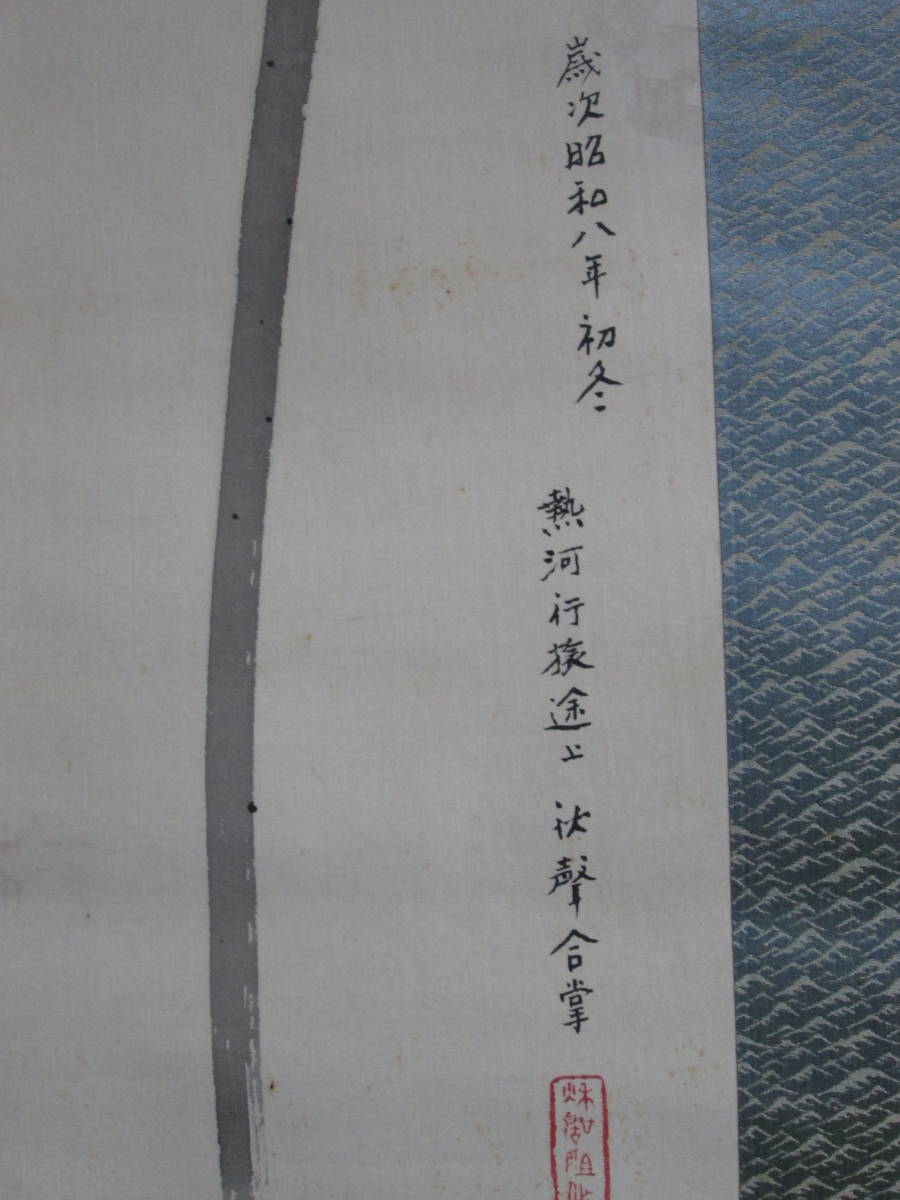 歳次昭和八年初冬 熱河行旅途上 秋聲合掌